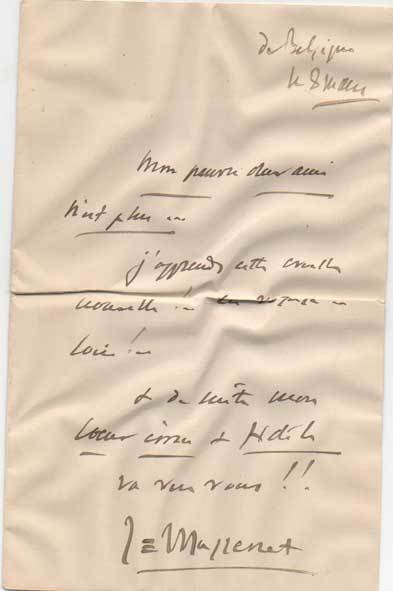 de Belgique
le 8 mars
Mon pauvre cher ami
n'est plus ...
j'apprends cette cruelle
nouvelle !... en voyage ...
loin !...
& de suite mon
cœur ému & fidèle
va vers vous !!
J. Massenet